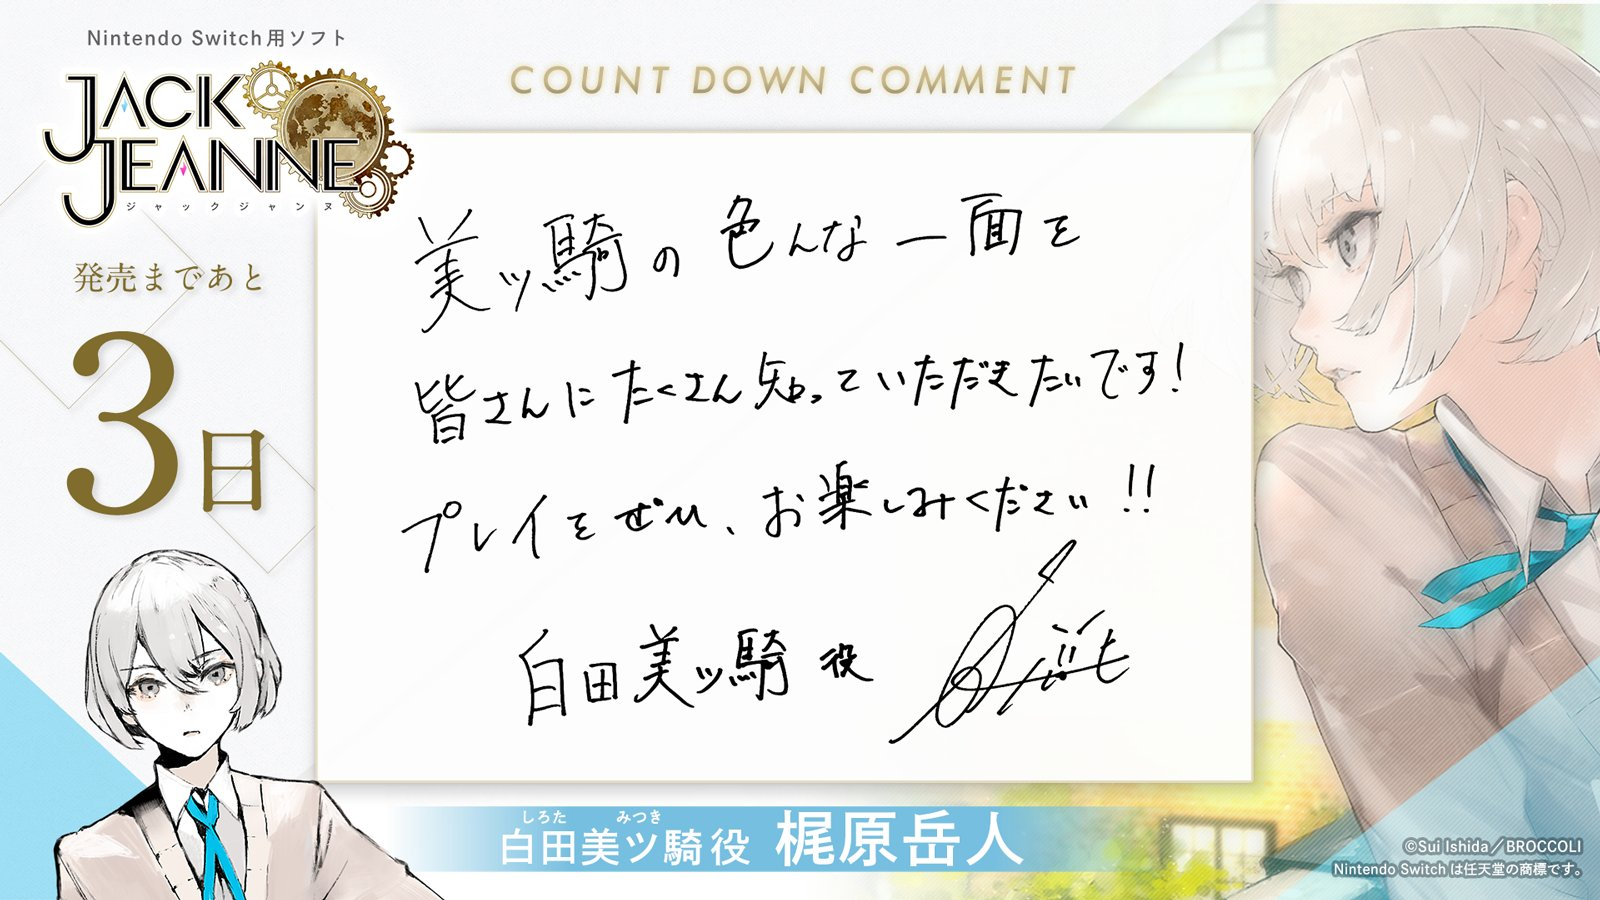 Nintendo Switch用ソフト
JACK
JEANNE
ジャックジャンヌ
発売まであと
3日
COUNT DOWN COMMENT
美ツ騎の色んな一面を
皆さんにたくさん知っていただきたいです!
プレイをぜひ、お楽しみください!!
白田美ツ騎 役
しろた みつき
白田美ツ騎役 梶原岳人
©Sui Ishida／BROCCOLI
Nintendo Switch は任天堂の商標です。